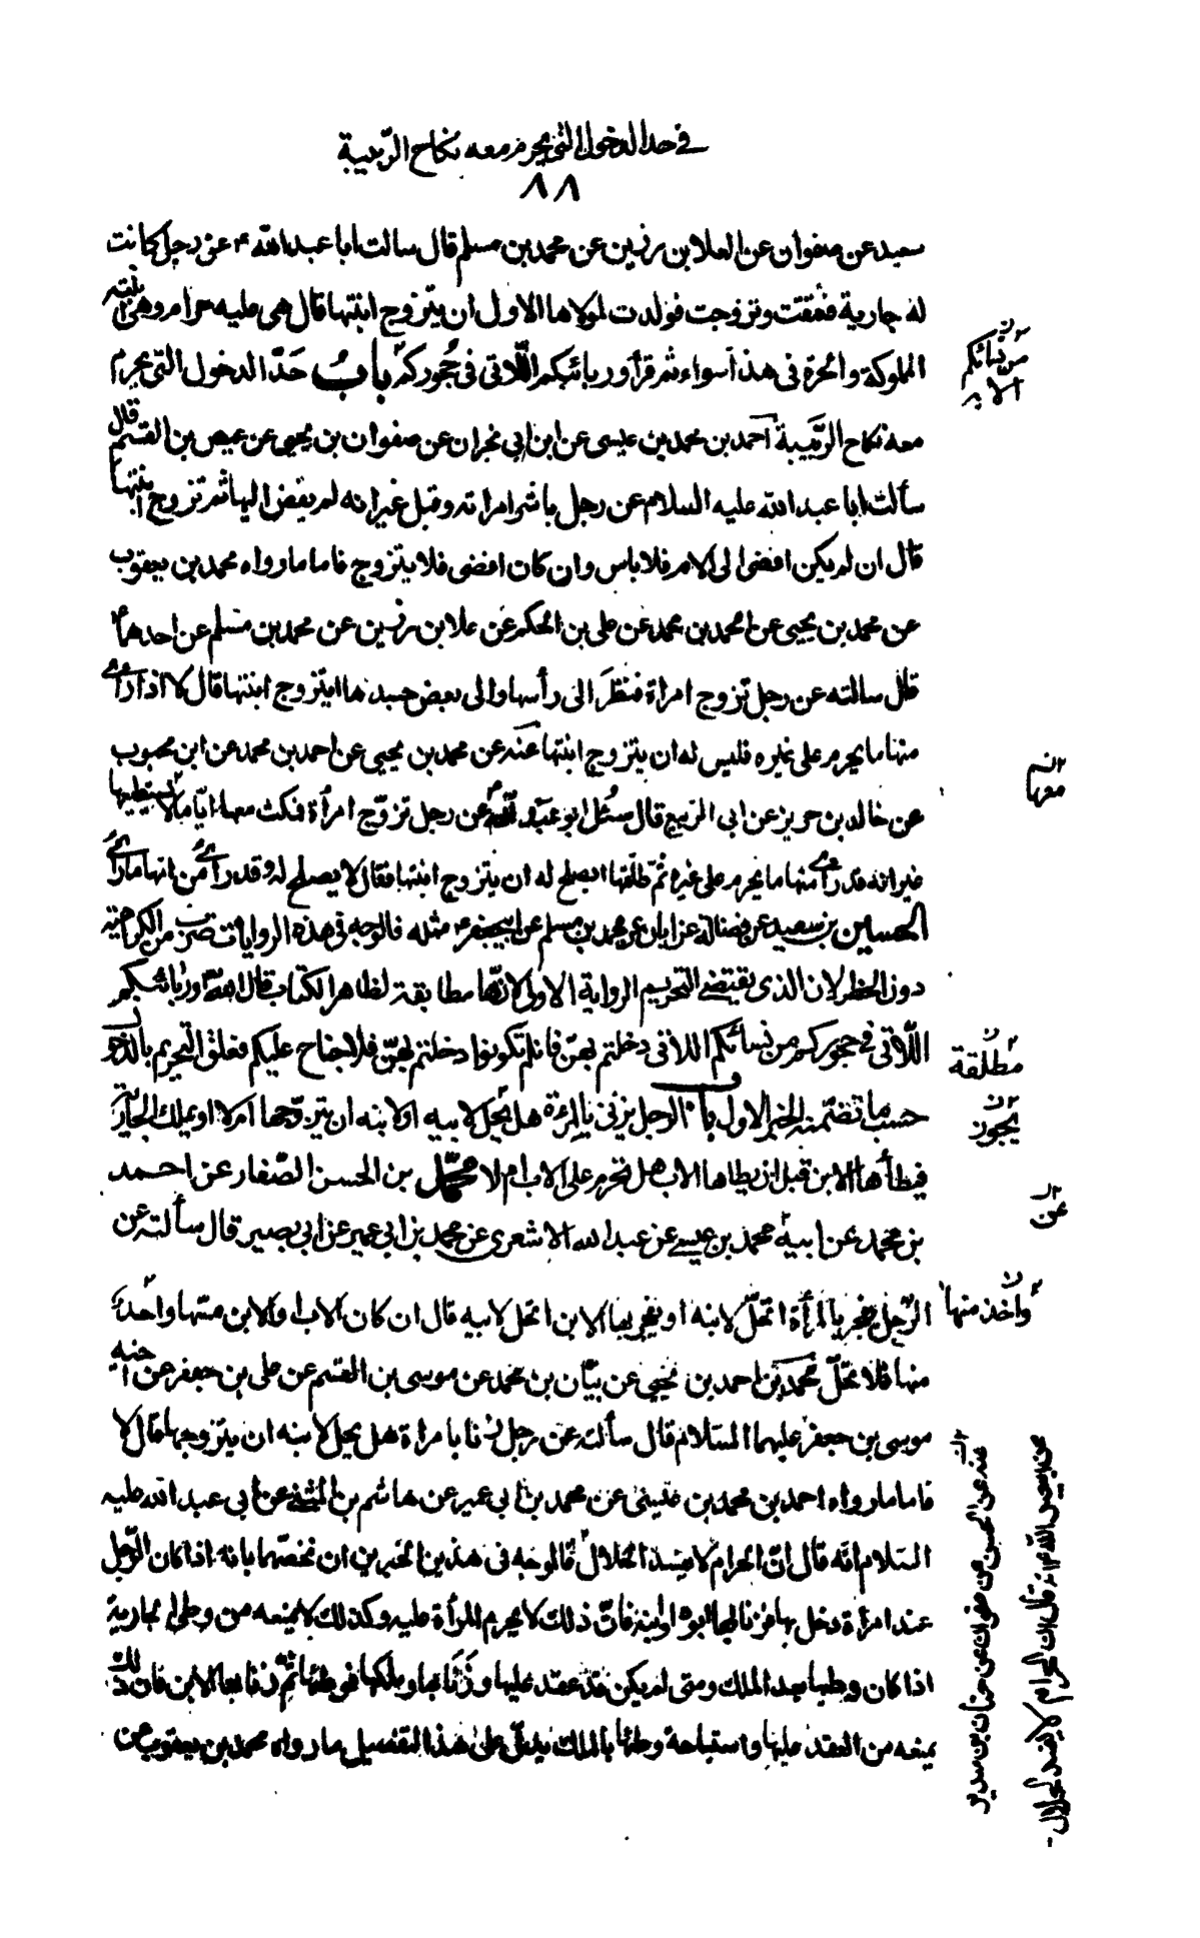 في حد الدخول التي يحرم معه نكاح الربيبة
٨٨
سعيد عن صفوان عن العلا بن رزين عن محمد بن مسلم قال سالت ابا عبد الله ع عن رجل كانت
له جارية فعتقت وتزوجت فولدت لمولاها الاول ان يتزوج ابنتها قال هى عليه حرام وهى ابنته
المملوكة والحرة فى هذا سواء ثم قرأ وربائبكم اللاتى فى حُجوركم بابُ حَدّ الدخول التى يحرم
من نسائكم
الاية
معه نكاح الرَّبيبة احمد بن محمد بن عيسى عن ابن ابى نجران عن صفوان بن يحيى عن عيص بن القسم قال
سألت ابا عبد الله عليه السلام عن رجل باشر امراته وقبل غير انه لم يفض اليها ثم تزوج ابنتها
قال ان لم يكن افضى الى الام فلا باس وان كان افضى فلا يتزوج فاما ما رواه محمد بن يعقوب
عن محمد بن يحيى عن احمد بن محمد عن على بن الحكم عن علا بن رزين عن محمد بن مسلم عن احدهما ع
قال سالته عن رجل تزوج امراة فنظَرَ الى رأسها والى بعض جسدها ايتزوج ابنتها قال لا اذا رأى
منها ما يحرم على غيره فليس له ان يتزوج ابنتها عنه عن محمد بن يحيى عن احمد بن محمد عن ابن محبوب
معها
عن خالد بن حريز عن ابى الربيع قال سُئل ابو عبد الله ع عن رجل تزوّج امرأة فمكث معها ايّاما لا يستطيعها
غير انه قد رأى منها ما يحرم على غيره ثمّ طلّقها ايصلح له ان يتزوج ابنتها فقال لا يصلح له وقد رأى من امها ما رأى
الحسين بن سعيد عن فضالة عن ابان عن محمد بن مسلم عن ابيجعفر ع مثله فالوجه فى هذه الروايات ضرب من الكراهية
دون الحظر لان الذى يقتضى التحريم الرواية الاولى لانّها مطابقة لظاهر الكتاب قال الله وربائبكم
اللّاتى فى حجوركم من نسائكم اللاتى دخلتم بهنّ فان لم تكونوا دخلتم بهنّ فلا جناح عليكم فعلق التحريم بالدخول
مطلقة
حسب ما تضمنه الخبر الاول باب الرجل يزنى بالمرءة هل يحل لابيه او لابنه ان يتزوجها ام لا او يملك الجارية
يجوز
فيطأها الابن قبل ان يطاها الاب هل تحرم على الاب ام لا محمّد بن الحسن الصّفار عن احمد
عن
بن محمد عن ابيه محمد بن عيسى عن عبد الله الاشعرى عن محمد بن ابى عمير عن ابى بصير قال سألته عن
الرّجل يفجر بالمرأة اتحلّ لابنه او يفجر بها الابن اتحل لابيه قال ان كان الاب او الابن مسّها واحد
واخذ منها
منهما فلا تحلّ محمد بن احمد بن يحيى عن بَيّان بن محمد عن موسى بن القسم عن على بن جعفر عن اخيه
موسى بن جعفر عليهما السّلام قال سألته عن رجل زنا بامراة هل يحل لابنه ان يتزوجها قال لا
فاما ما رواه احمد بن محمد بن عيسى عن محمد بن ابى عمير عن هاشم بن المثنى عن ابى عبد الله عليه
السّلام انّه قال انّ الحرام لا يفسد الحلال فالوجه فى هذين الخبرين ان نخصّهما بانه اذا كان الرّجل
عند امرأة دخل بها فزنا بها ابوه او ابنه فانّ ذلك لا يحرم المرأة عليه وكذلك لا يمنعه من وطى الجارية
اذا كان وطيها بعد الملك ومتى لم يكن قد عقد عليها وزَنَا بها ويملكها فوطئها ثمّ زنا بها الابن فان ذلك
يمنعه من العقد عليها واستباحة وطئها بالملك يدلّ على هذا التفصيل ما رواه محمد بن يعقوب عن
عنه عن الحسن عن صفوان عن حنان بن سدير
عن بعيص الله انه قال ان الحرام لا يفسد الحلال